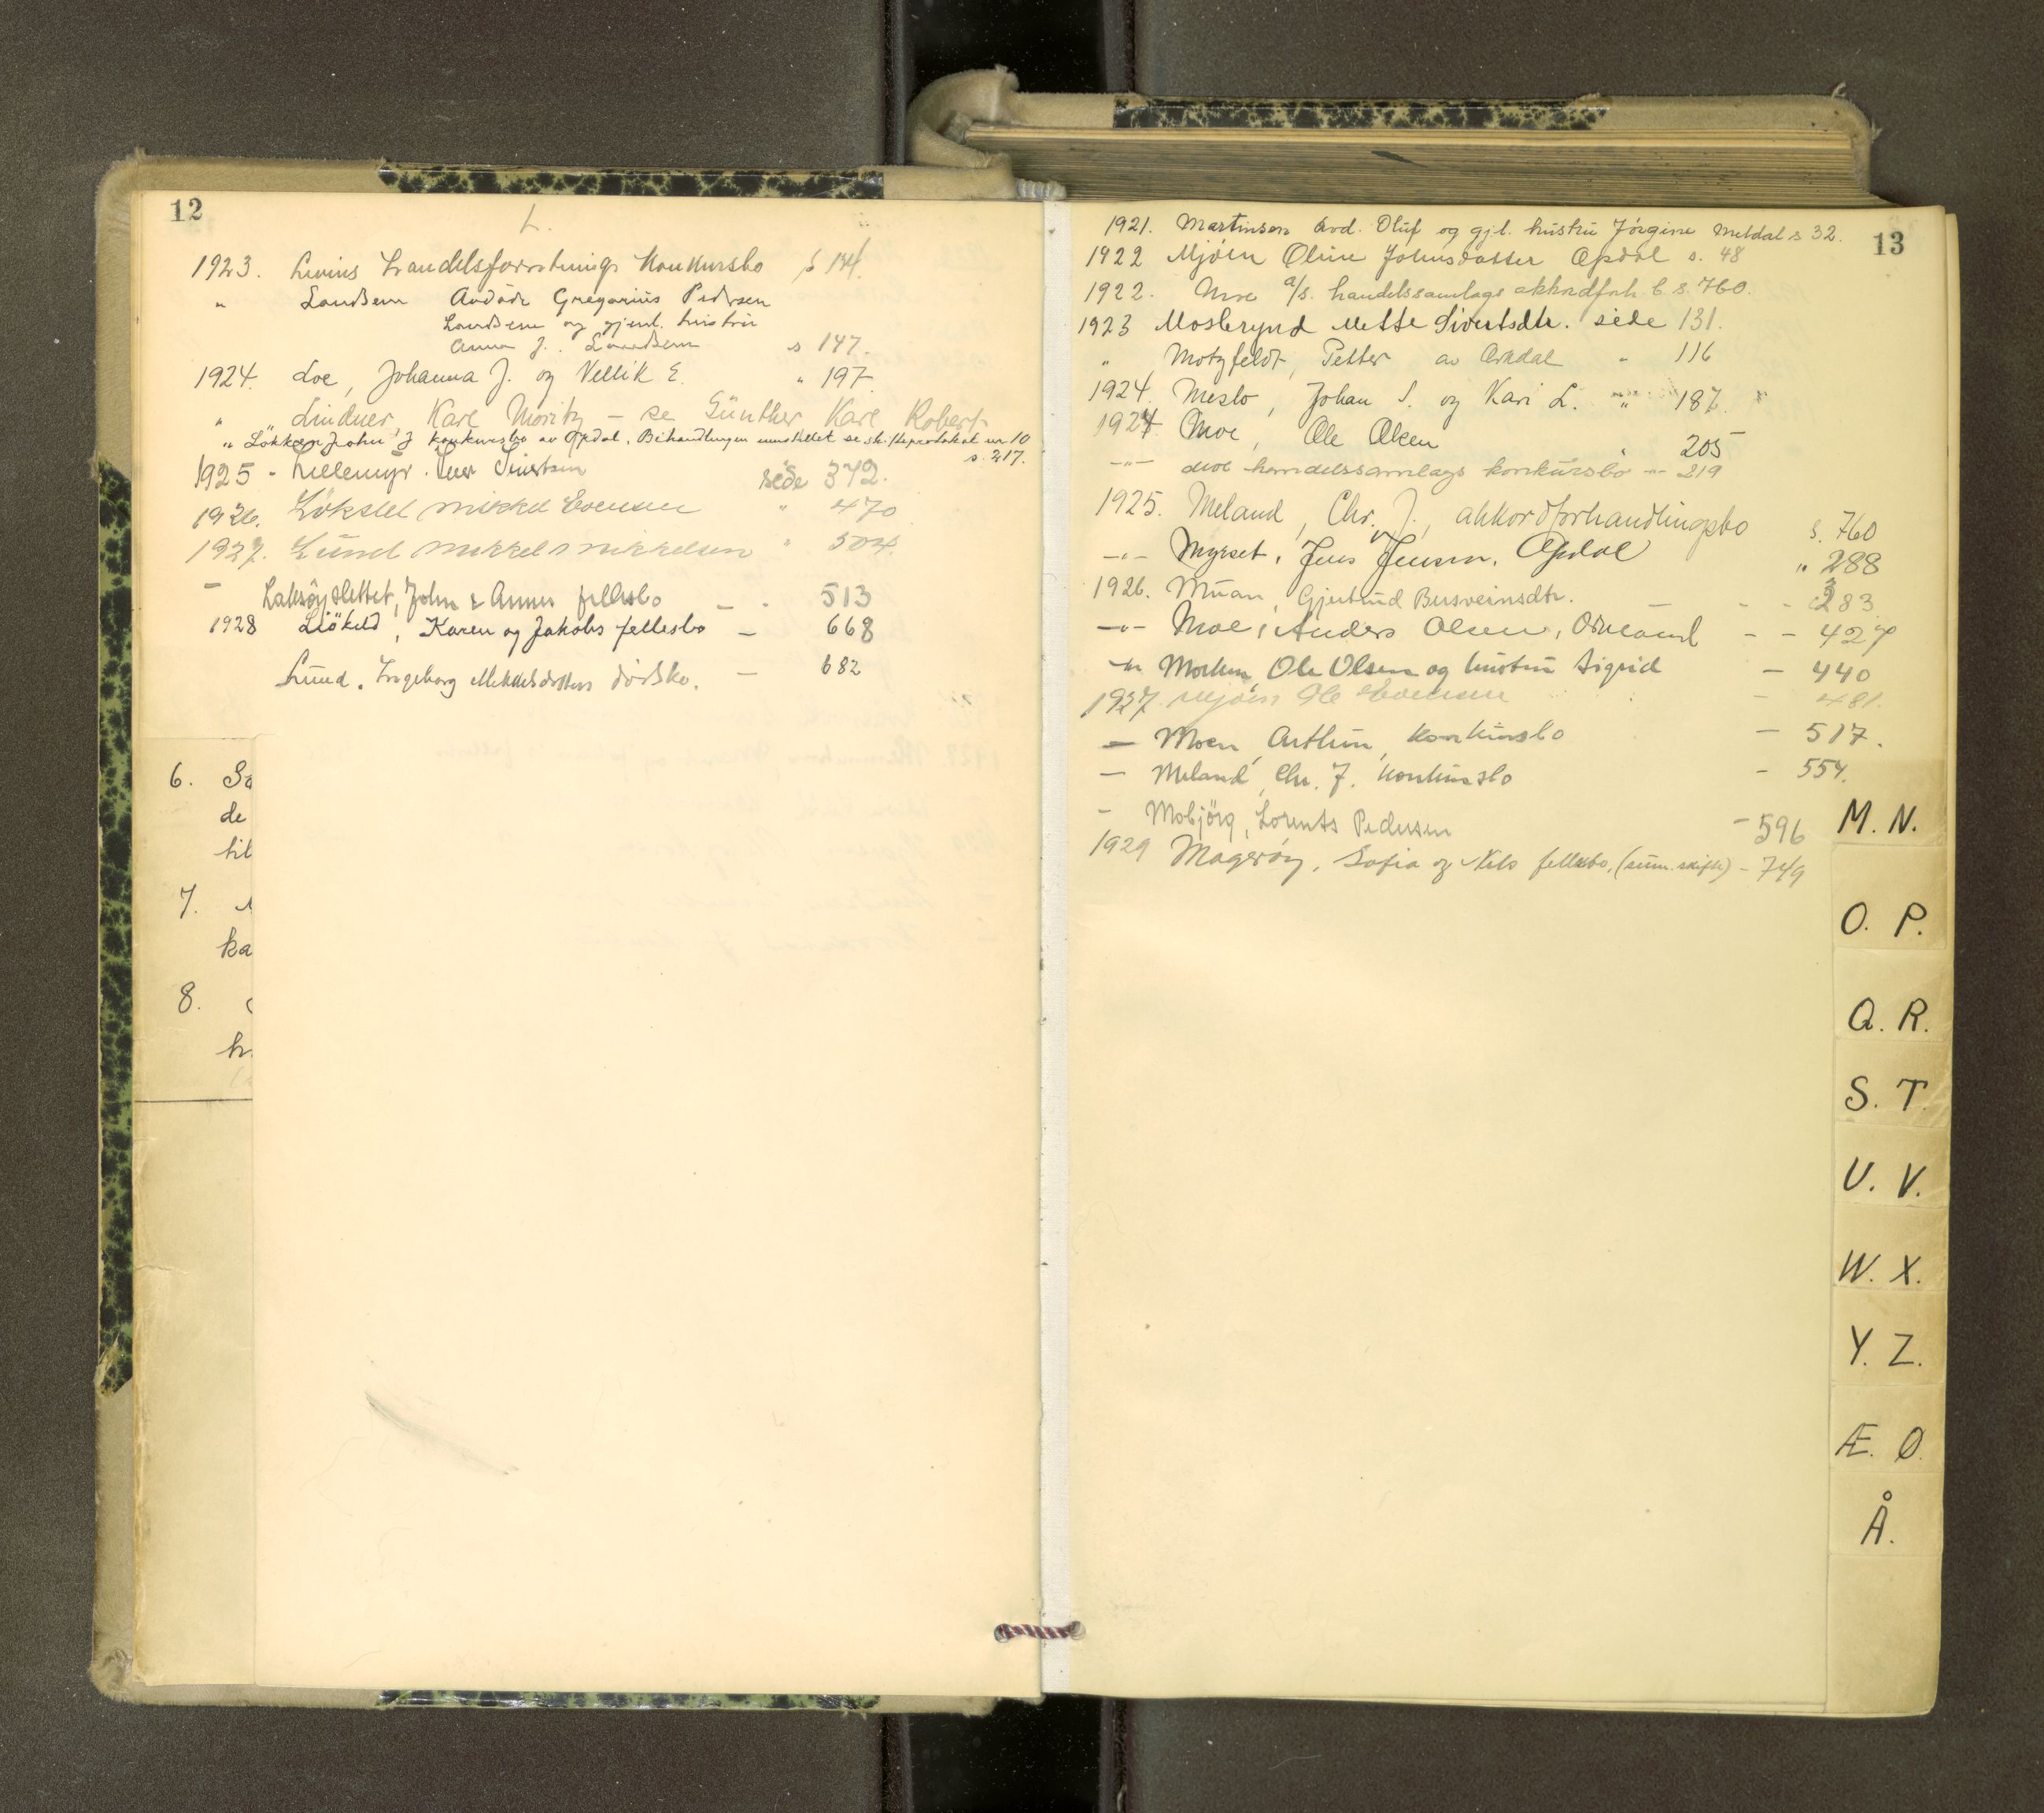 12
L.
1923. Levins Handelsforretnings Konkursbo s 134.
" Landsem Avdøde Gregarius Pedersen
Landsem og gjenl. hustru
Anna J. Landsem s 147.
1924. Loe, Johanna J. og Vellik E. " 197
" Lindner, Karl Moritz – se Günther Karl Robert
" Løkken John J konkursbo av Opdal. Behandlingen innstillet se sk.tteprotokol nr 10
s. 217.
1925 - Lillemyr. Iver Sivertsen side 372.
1926. Løkslet Mikkel Evensen " 470
1927. Lund Mikkel Mikkelsen " 504
– Laksøyslettet, John & Annes fellesbo – - 513
1928 Liøkeld, Karen og Jakobs fellesbo – 668
Lund, Ingeborg Mikkelsdatters dødsbo. – 682
6. Sa
de
til
7.
ka
8.
h.
13
1921. Martinsen Avd. Oluf og gjl. hustru Jørgine Meldal s 32.
1922 Mjøen Oline Johnsdatter Opdal s. 48
1922. Moe a/s. handelssamlags akkordforh. b. s. 760.
1923 Mosbrynd Mette Sivertsdtr. side 131.
" Motzfeldt, Petter av Orkdal " 116
1924. Meslo, Johan S. og Kari L. " 187.
1924. Moe, Ole Olsen " 205
-"- Moe handelssamlags konkursbo -"- 219
1925. Meland, Chr. J., akkordforhandlingsbo s. 760
-"- Myrset, Jens Jensen, Opdal " 288
1926. Muan, Gjertrud Bersveinsdtr. - - 383.
-"- Moe, Anders Olsen, Ørland - - 427
-"- Morken, Ole Olsen og hustru Sigrid – 440
1927. Mjøen Ole Evensen – 481.
– Moen, Arthur, konkursbo – 517.
– Meland, Chr. J. konkursbo – 554.
– Mobjörg, Lorents Pedersen – 596
1929 Magerøy, Sofia og Nils fellesbo, (sum. skifte) – 749
M. N.
O. P.
Q. R.
S. T.
U. V.
W. X.
Y. Z.
Æ. Ø.
Å.